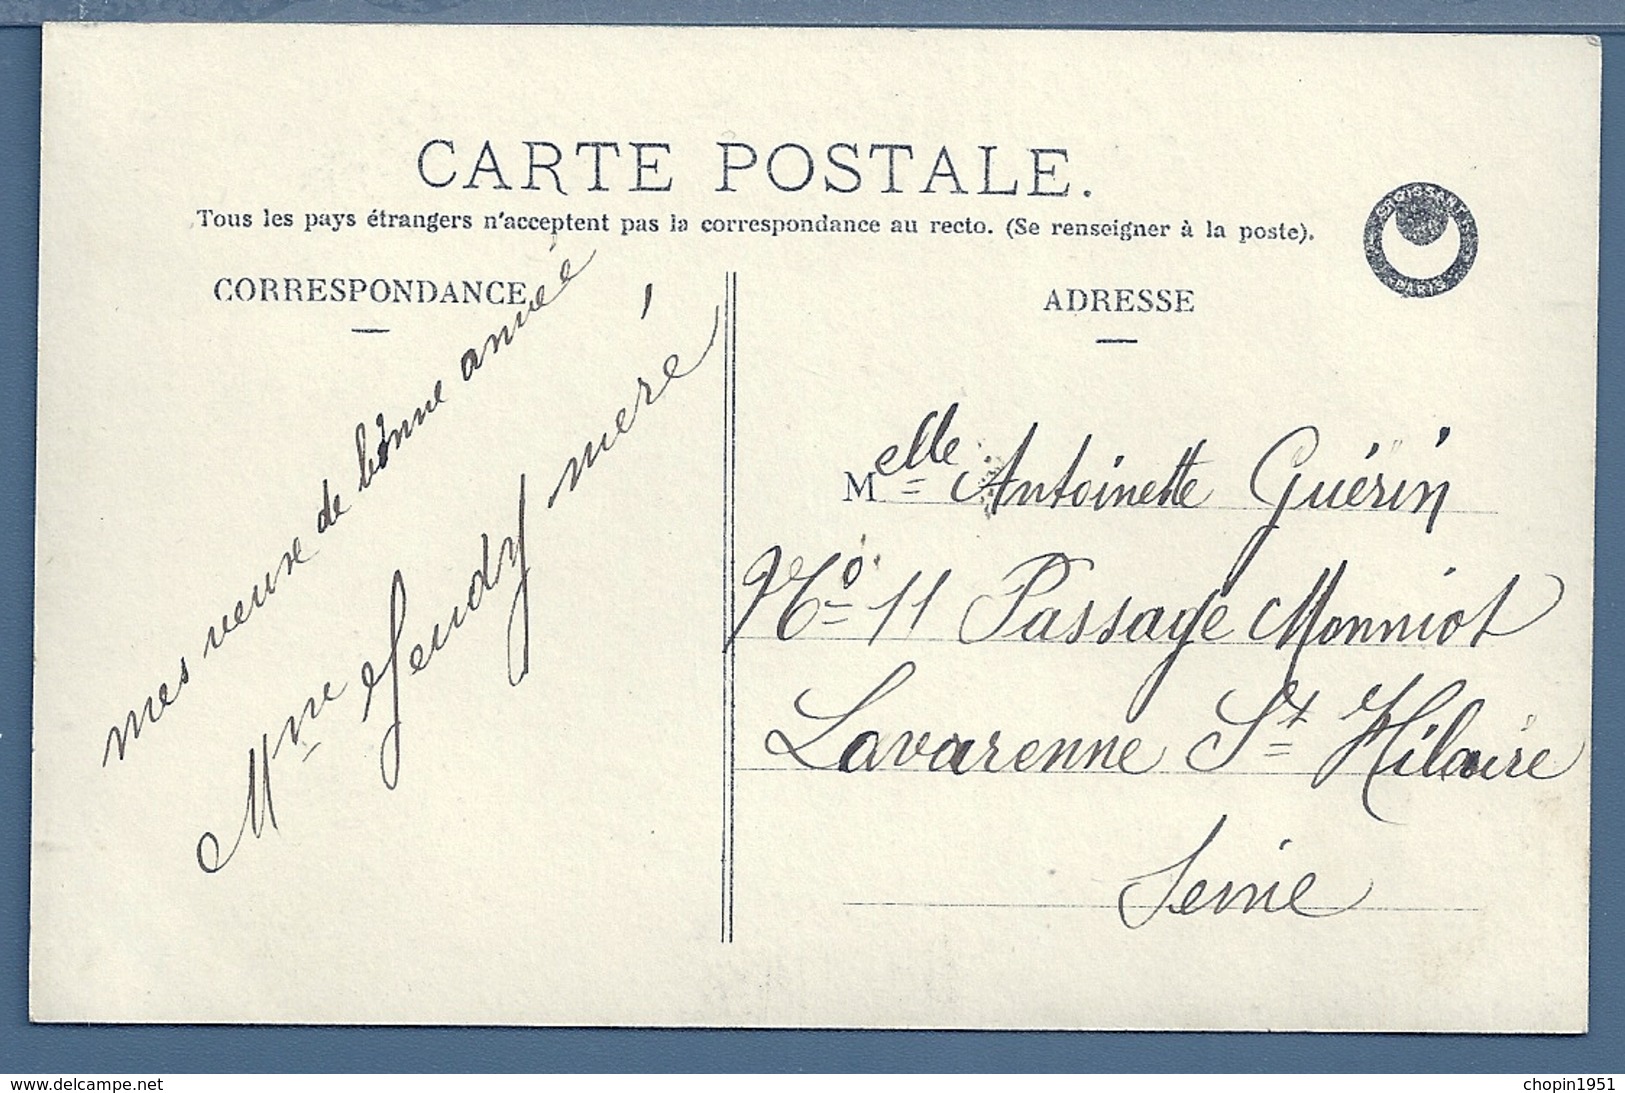 CARTE POSTALE.
Tous les pays étrangers n'acceptent pas la correspondance au recto. (Se renseigner à la poste).
CROISSANT
PARIS
CORRESPONDANCE
mes veux de bonne année
Mme Gendy meré
ADRESSE
Melle Antoinette Guérin
No 11 Passage Monniot
Lavarenne St Hilaire
Seine
www.delcampe.net
chopin1951